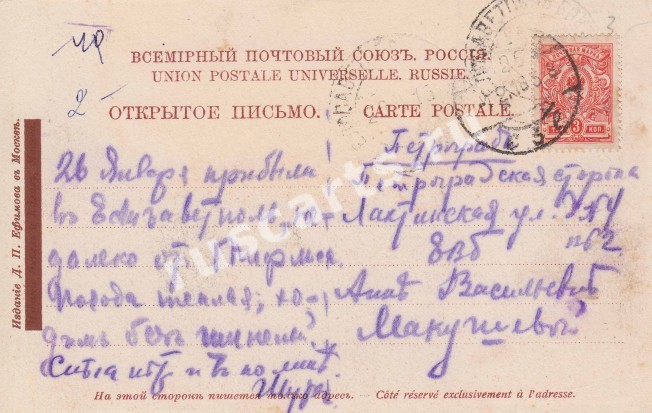 ВСЕМІРНЫЙ ПОЧТОВЫЙ СОЮЗЪ. РОССІЯ.
UNION POSTALE UNIVERSELLE. RUSSIE.
ОТКРЫТОЕ ПИСЬМО. CARTE POSTALE.
3 КОП
2
Изданіе Д. П. Ефимова въ Москвѣ.
26 Января прибыли
въ Елизаветполь, не-
далеко отъ
Погода теплая; хо-
димъ безъ шинели.
Снѣга нѣтъ
Шура
Петроградъ
Петроградская сторона
Лахтинская ул.
Аннѣ Васильевнѣ
Макушевой
На этой сторонѣ пишется только адресъ. — Côté réservé exclusivement à l'adresse.
ruscarts.ru